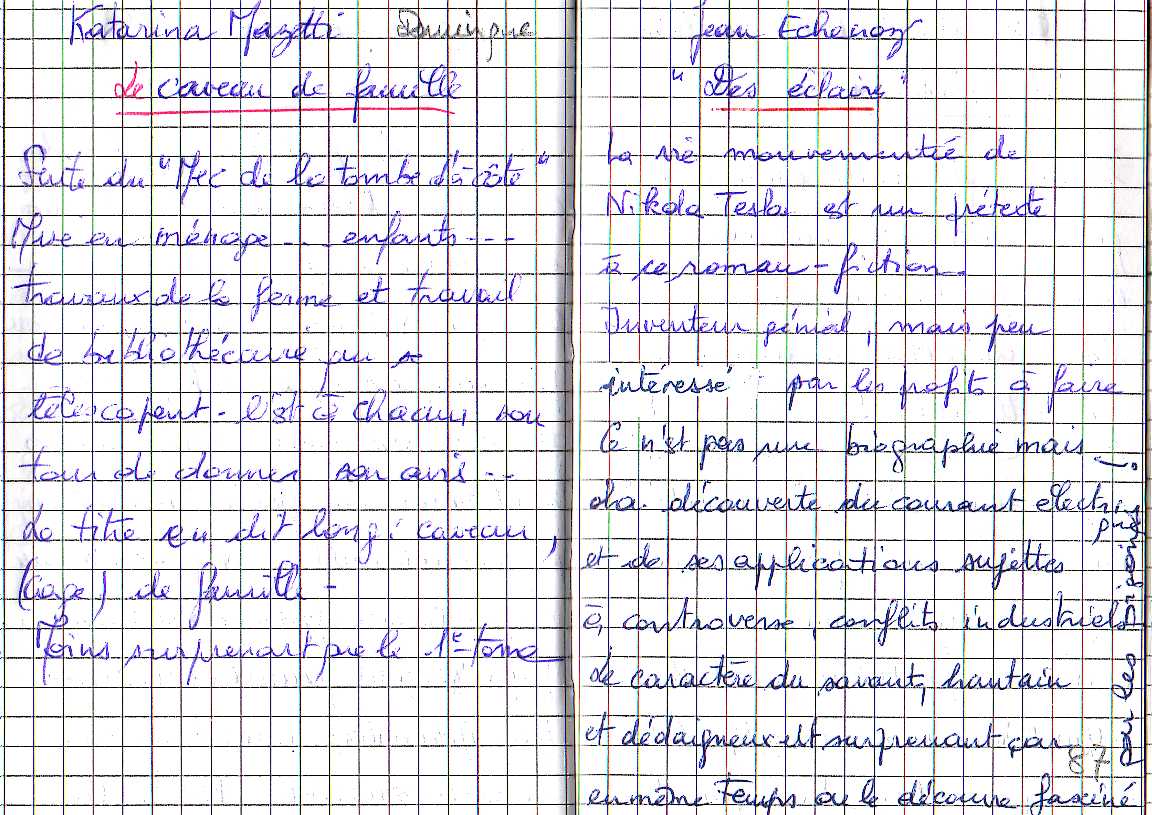 Katarina Mazetti Dominique
Le caveau de famille
Suite du "Mec de la tombe d'à côté"
Mise en ménage... enfants---
travaux de la ferme et travail
de bibliothécaire qui se
télescopent - C'est à chacun son
tour de donner son avis...
Le titre en dit long : caveau,
(cage) de famille -
Moins surprenant que le 1er tome
Jean Echenoz
"Des éclairs"
La vie mouvementée de
Nikola Tesla est un prétexte
à ce roman-fiction.
Inventeur génial, mais peu
intéressé par les profits à faire
Ce n'est pas une biographie mais
la découverte du courant électrique
et de ses applications sujettes
à controverse, conflits industriels
Le caractère du savant, hautain
et dédaigneux est surprenant car
en même temps on le découvre fasciné
par les pigeons!
87